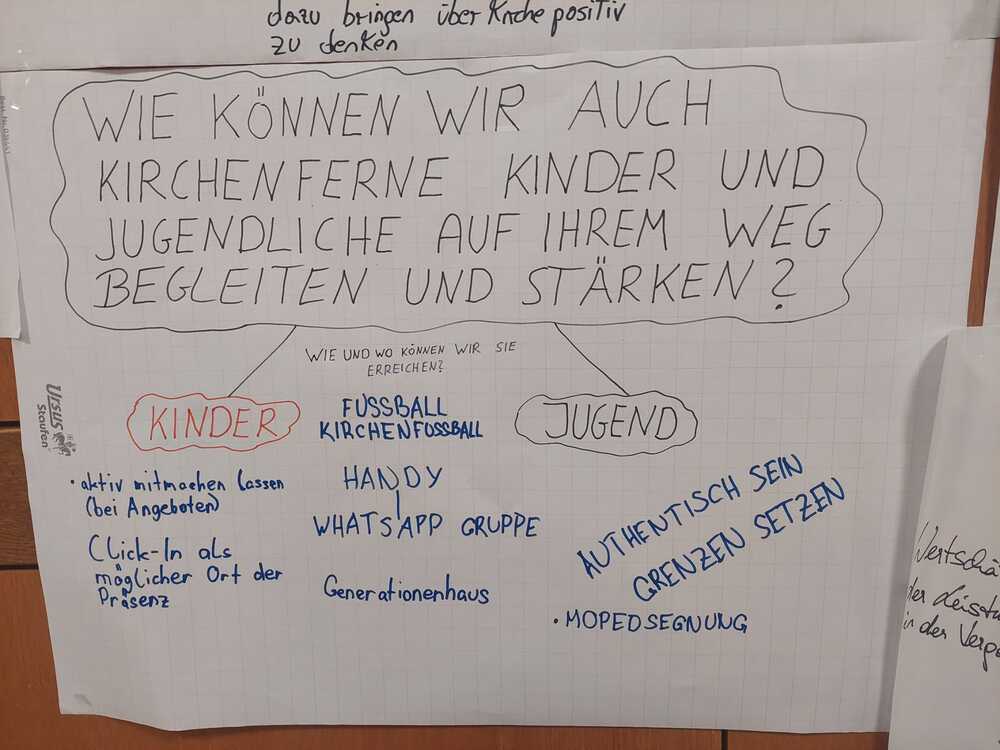 dazu bringen über Kirche positiv
zu denken
WIE KÖNNEN WIR AUCH
KIRCHENFERNE KINDER UND
JUGENDLICHE AUF IHREM WEG
BEGLEITEN UND STÄRKEN?
WIE UND WO KÖNNEN WIR SIE
ERREICHEN?
KINDER
· aktiv mitmachen lassen
(bei Angeboten)
Click-In als
möglicher Ort der
Präsenz
FUSSBALL
KIRCHENFUSSBALL
HANDY
WHATSAPP GRUPPE
Generationenhaus
JUGEND
AUTHENTISCH SEIN
GRENZEN SETZEN
· MOPEDSEGNUNG
URSUS
Staufen
Wertschä
der Leist
in der Verg